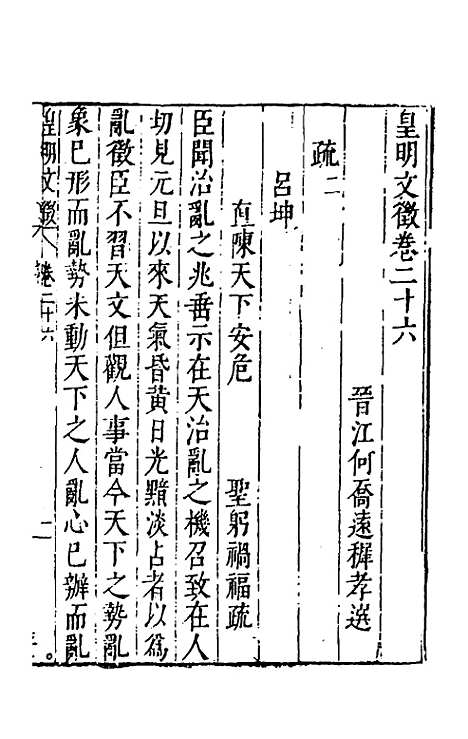 皇明文徵卷二十六
晉江何喬遠穉孝選
疏二
呂坤
直陳天下安危 聖躬禍福疏
臣聞治亂之兆垂示在天治亂之機召致在人
切見元旦以來天氣昏黄日光黯淡占者以爲
亂徵臣不習天文但觀人事當今天下之勢亂
象已形而亂勢未動天下之人亂心已辦而亂
皇明文徵 卷二十六 一